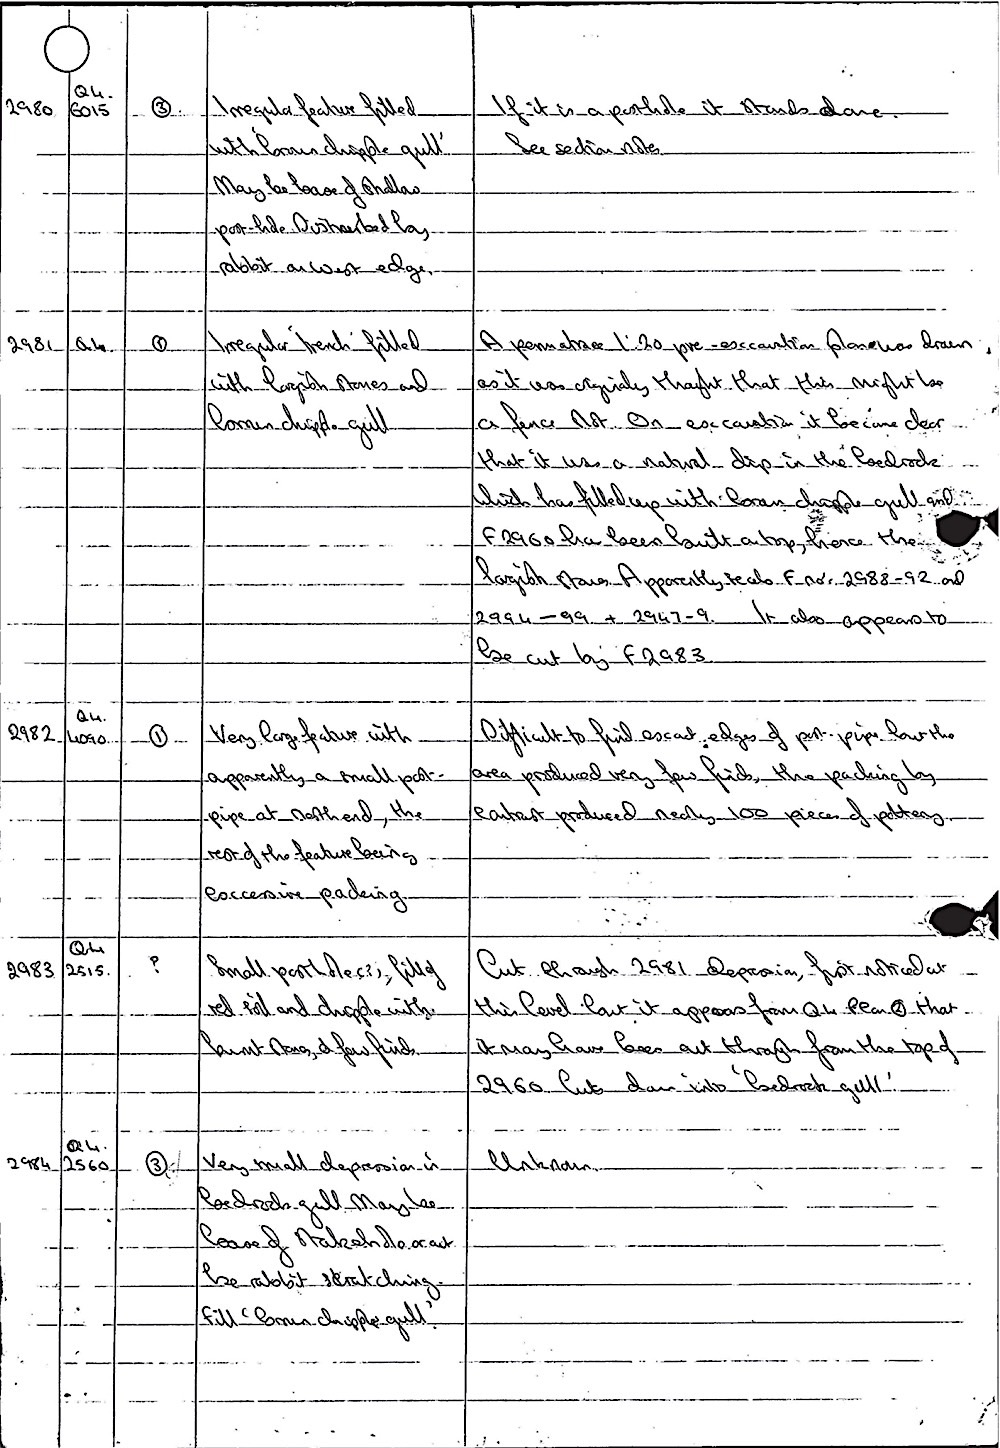 Q4.
2980 6015 ③ Irregular feature filled If it is a posthole it stands alone.
with 'brown chipple gull' See section notes
May be base of shallow
post-hole Disturbed by
rabbit on west edge.
2981 Q4. ① Irregular 'trench' filled A permatrace 1:20 pre-excavation plan was drawn,
with largish stones and as it was originally thought that this might be
brown chipple gull a fence slot. On excavation it became clear
that it was a natural dip in the bedrock
which has filled up with brown chipple gull and
F2960 has been built atop, hence the
largish stones Apparently seals F nos. 2988-92 and
2994-99 + 2947-9. It also appears to
be cut by F2983
Q4.
2982 4090 ① Very large feature with Difficult to find exact edges of post-pipe but the
apparently a small post- area produced very few finds, the packing by
pipe at north end, the contrast produced nearly 100 pieces of pottery.
rest of the feature being
excessive packing
Q4
2983 2515. ? Small posthole(?), fill of Cut through 2981 depression, first noticed at
red soil and chipple with this level but it appears from Q4 Plan ② that
burnt stones, a few finds. it may have been cut through from the top of
2960 Cuts down into 'bedrock gull'
Q4.
2984 2560 ③ Very small depression in Unknown.
bedrock gull May be
base of stakehole or
be rabbit scratching.
Fill 'brown chipple gull'.